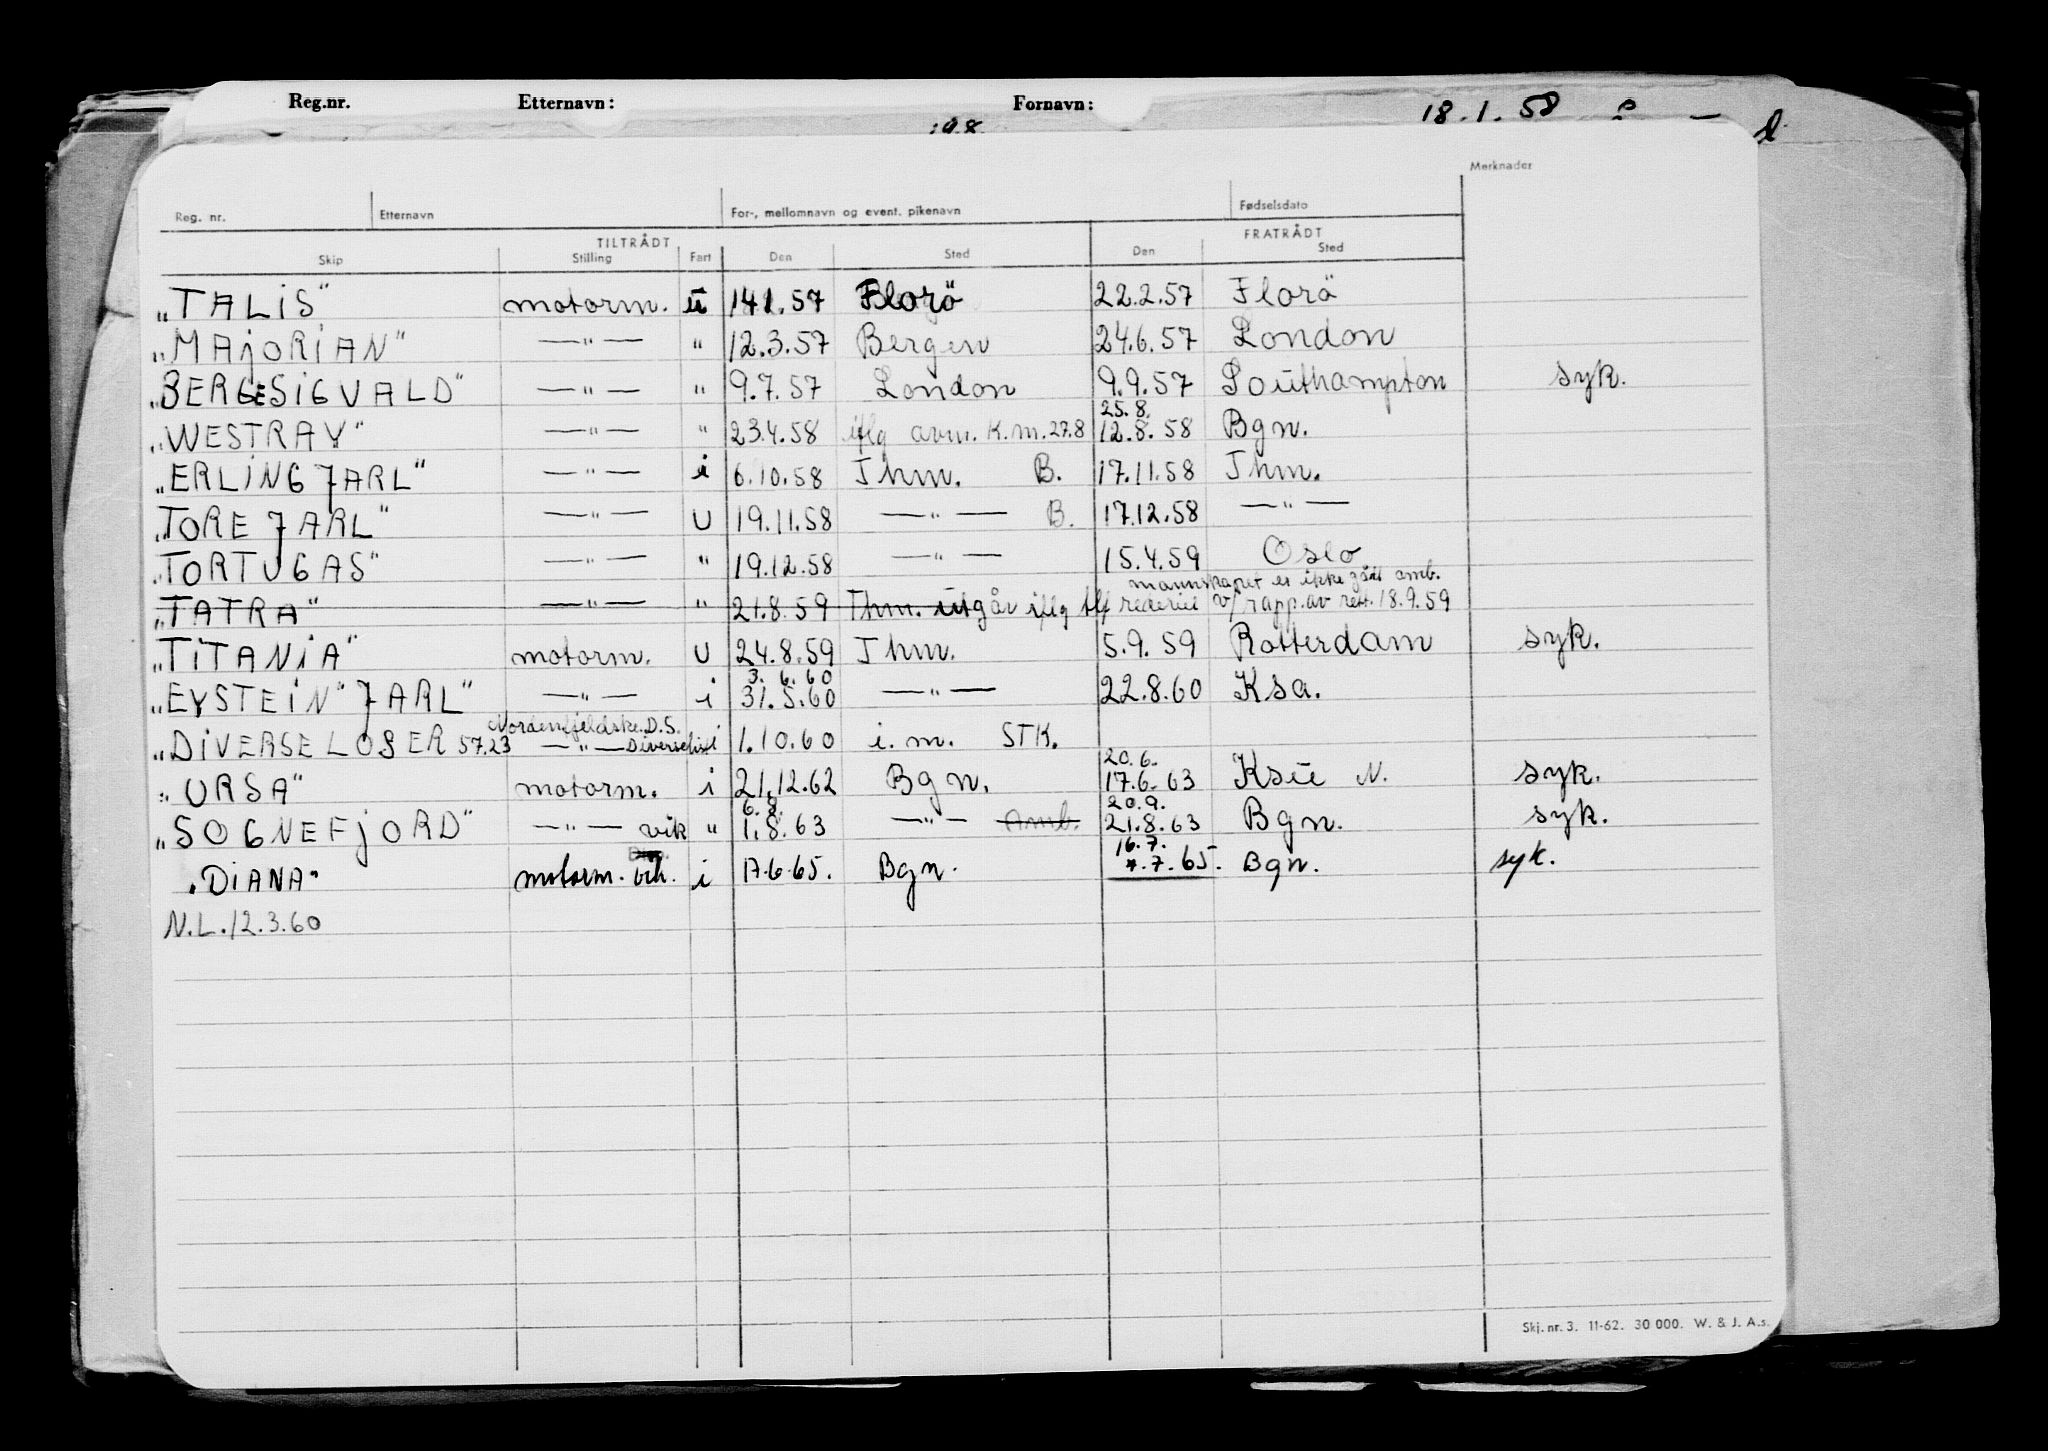 Reg.nr. Etternavn: Fornavn: 18.1.58
Merknader
Reg. nr. Etternavn For-, mellomnavn og event. pikenavn Fødselsdato
TILTRÅDT FRATRÅDT
Skip Stilling Fart Den Sted Den Sted
"TALIS" motorm. u 14.1.57 Florö 22.2.57 Florö
"MAJORIAN" —"— " 12.3.57 Bergen 24.6.57 London
"BERGESIGVALD" —"— " 9.7.57 London 9.9.57 Southampton syk.
25.8.
"WESTRAY" —"— " 23.4.58 iflg avm. K.m. 27.8 12.8.58 Bgn.
"ERLING JARL" —"— i 6.10.58 Thm. B. 17.11.58 Thm.
"TORE JARL" —"— U 19.11.58 —"— B. 17.12.58 —"—
"TORTUGAS" —"— " 19.12.58 —"— 15.4.59 Oslo
mannskapet er ikke gått omb.
"TATRA" —"— " 21.8.59 Thm. utgår iflg tlf rederiet v/rapp. av rett. 18.9.59
"TITANIA" motorm. U 24.8.59 Thm. 5.9.59 Rotterdam syk.
3.6.60
"EYSTEIN" JARL" —"— i 31.5.60 —"— 22.8.60 Ksa.
Nordenfjeldske D.S.
"DIVERSE LOSER 57.23 —"— i 1.10.60 i.m. STK.
20.6.
"URSA" motorm. i 21.12.62 Bgn. 17.6.63 Ksu N. syk.
6.8. 20.9.
"SOGNEFJORD" —"— vik " 1.8.63 —"— Omb. 21.8.63 Bgn. syk.
16.7.
"DIANA" motorm. vik. i 17.6.65. Bgn. .7.65. Bgn. syk.
N.L. 12.3.60
Skj. nr. 3. 11-62. 30 000. W. & J. A.s.